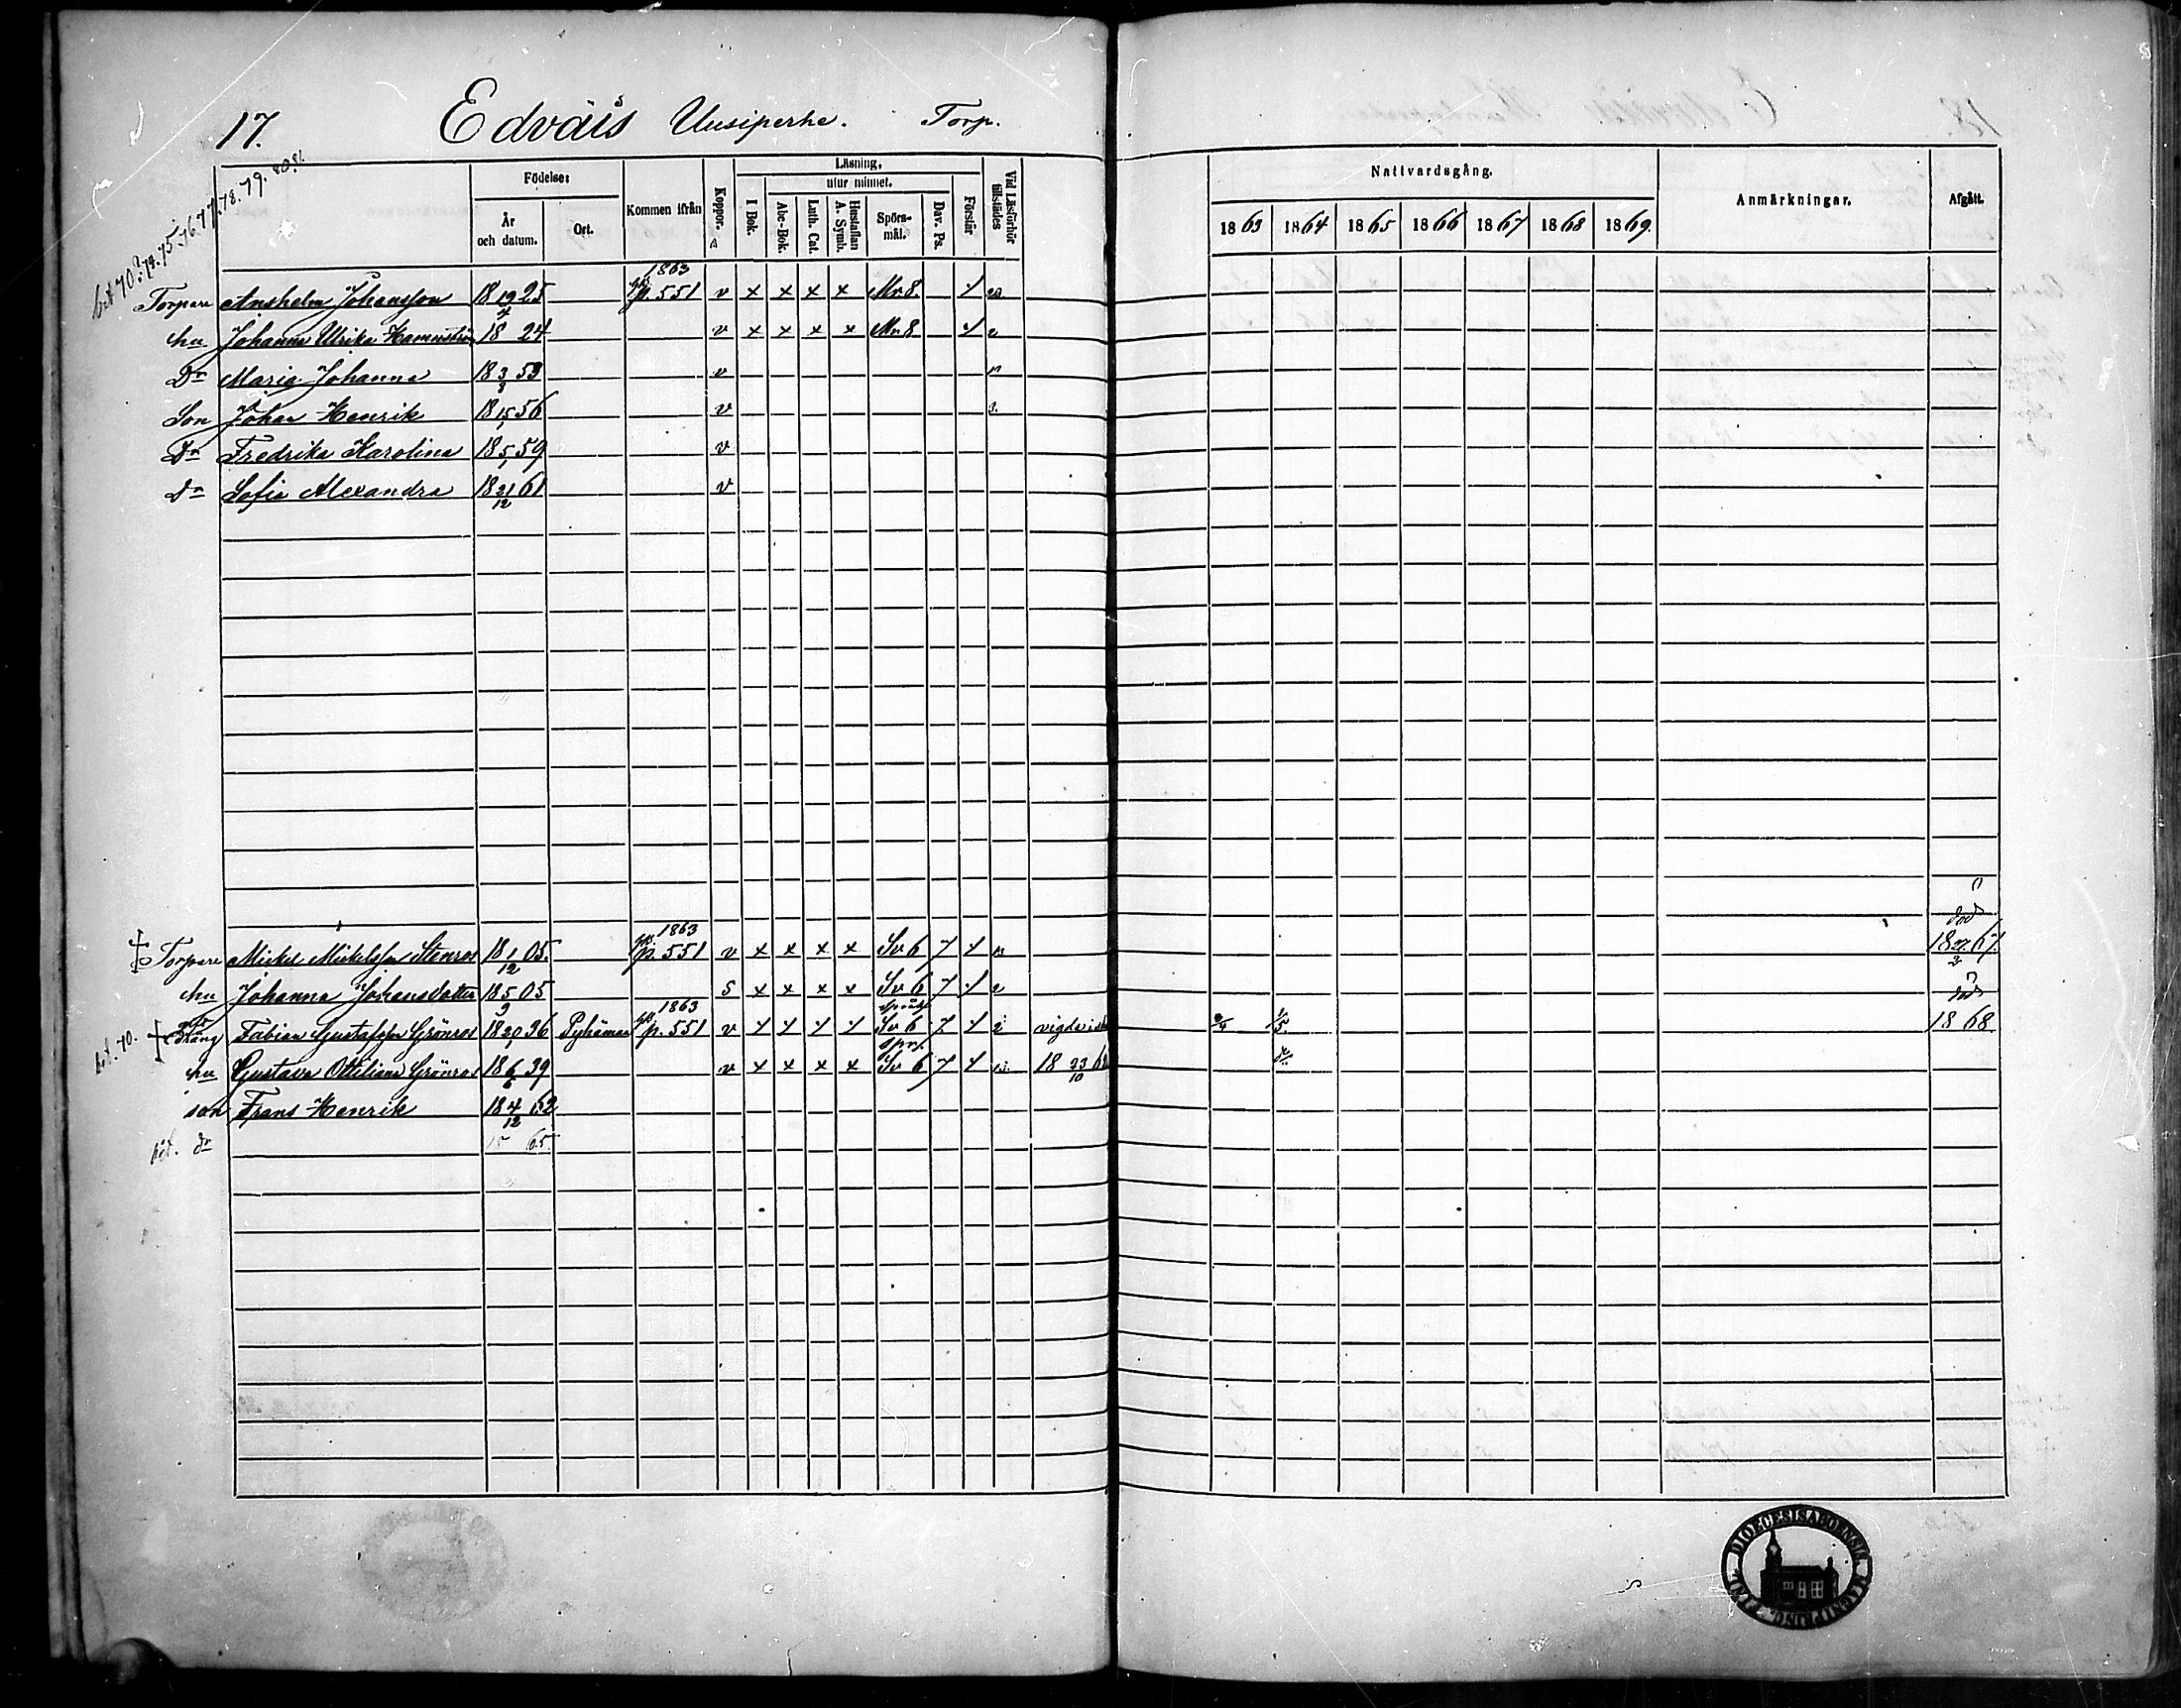 17. Edväis Uusiperhe. Torp.
bet 70. 74. 75. 76. 77. 78. 79. 80. 81.
Födelse: Kommen ifrån Koppor. Läsning, Vid Läsförhör tillstädes Nattvardsgång. Anmärkningar. Afgått.
År och datum. Ort. I Bok. utur minnet. Förstår
Abc-Bok. Luth. Cat. Hustaflan A. Symb. Spörs-mål. Dav. Ps.
1863 1864 1865 1866 1867 1868 1869.
1863
Torpare Anshelm Johansson 18 19/4 25 p. 551 v x x x x Nr 8.
hu Johanna Ulrika 18 24 v x x x x Nr 8
Dr Maria Johanna 18 3/8 53 v
Son Johan Henrik 18 15/1 56 v
Dr Fredrika Karolina 18 5/1 59 v
Dr Sofia Alexandra 18 21/12 61 v
1863 död
Torpare Mickel Mickelsson Stenros 18 1/12 05. p. 551 v x x x x Sv 6 7 18 27/3 67.
hu Johanna Johansdotter 18 5/9 05 s x x x x Sv 6 7 död
1863
Dräng Fabian Gustafsson Grönros 18 20/1 36 Pyhämaa p. 551 v Sv 6 7 vigde 1/5 18 68
bet. 70.
hu Gustava Ottiliana Grönros 18 6/6 39 v x x x x Sv 6 7 18 23/10
son Frans Henrik 18 4/12 62
dr 65.
DIOECESIS ABOENSIS MAGNI PRINC. FINL.